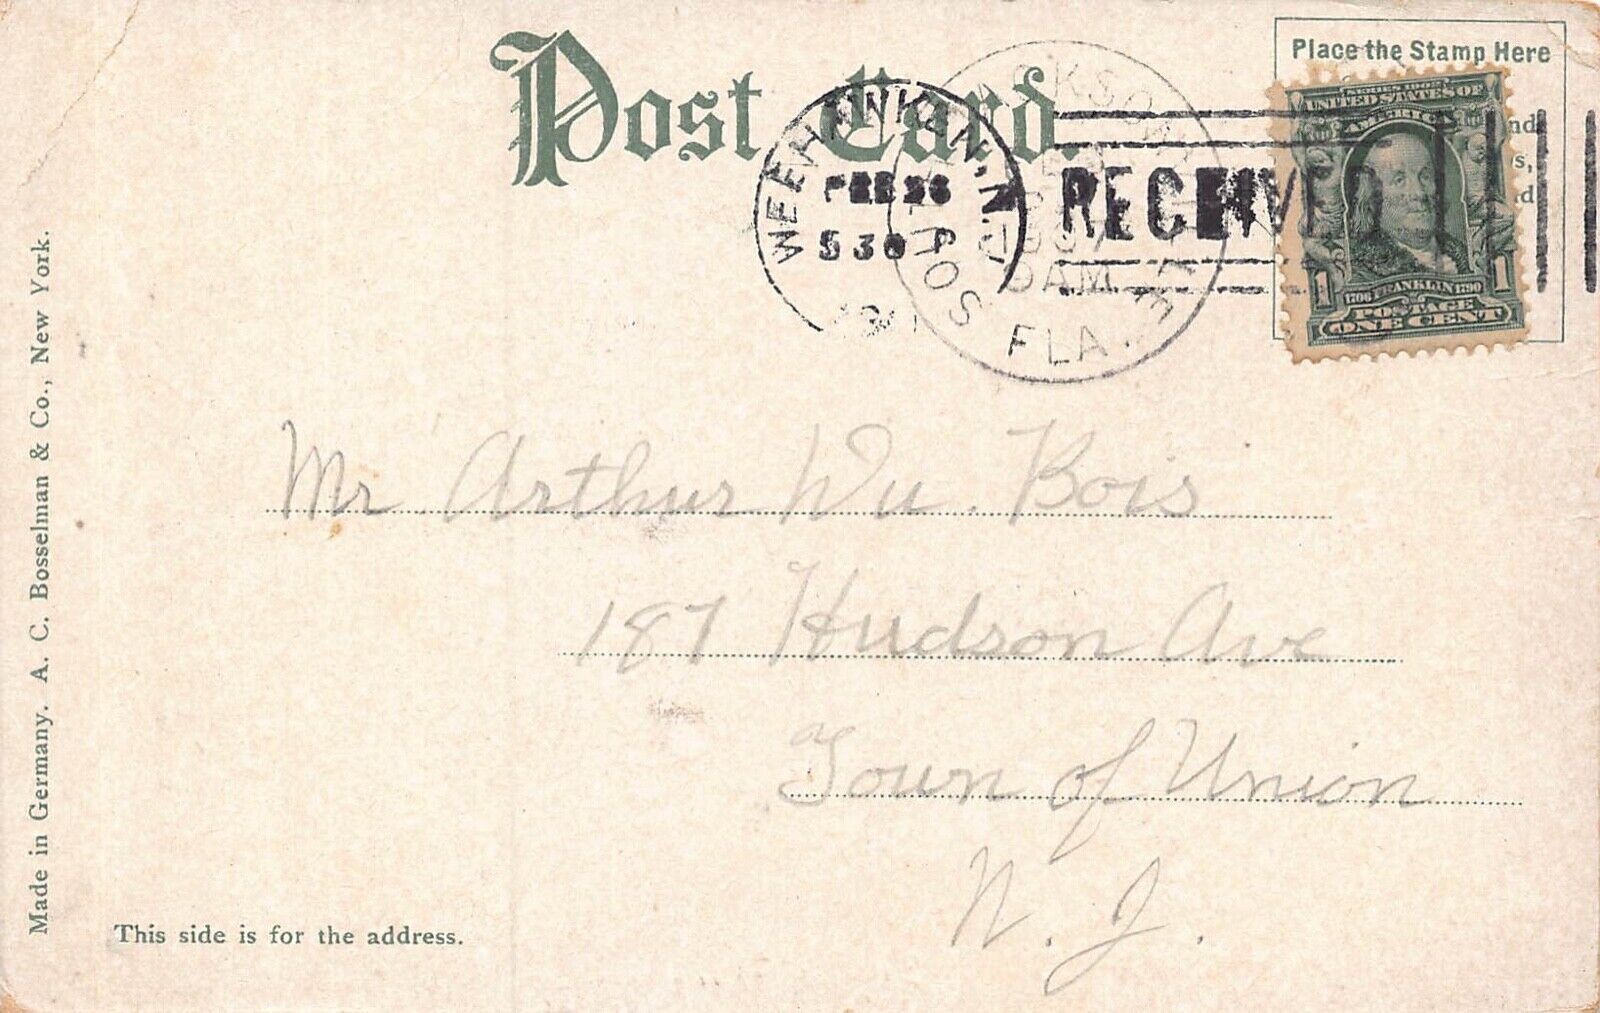 Post Card.
Place the Stamp Here
nd
s,
rd
WEEHAWKEN, N.J.
FEB 26
5 30 P
RECEIVED
FLA.
SERIES 1902
UNITED STATES OF
AMERICA
1706 FRANKLIN 1790
1 1
POSTAGE
ONE CENT
Mr. Arthur Du. Bois
187 Hudson Ave
Town of Union
N. J.
This side is for the address.
Made in Germany. A. C. Bosselman & Co., New York.